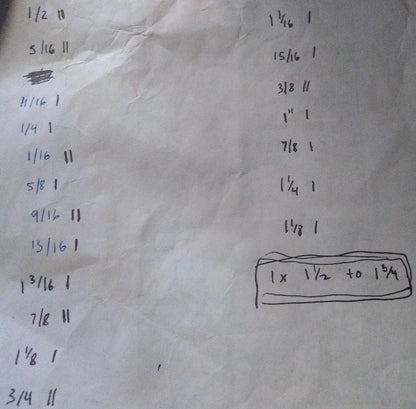 1/2 ||
5/16 ||
11/16 |
1/4 |
1/16 ||
5/8 |
9/16 ||
13/16 |
1 3/16 |
7/8 ||
1 1/8 |
3/4 ||
1 1/16 |
15/16 |
3/8 ||
1" |
7/8 |
1 1/4 |
1 1/8 |
1 x 1 1/2 to 1 3/4